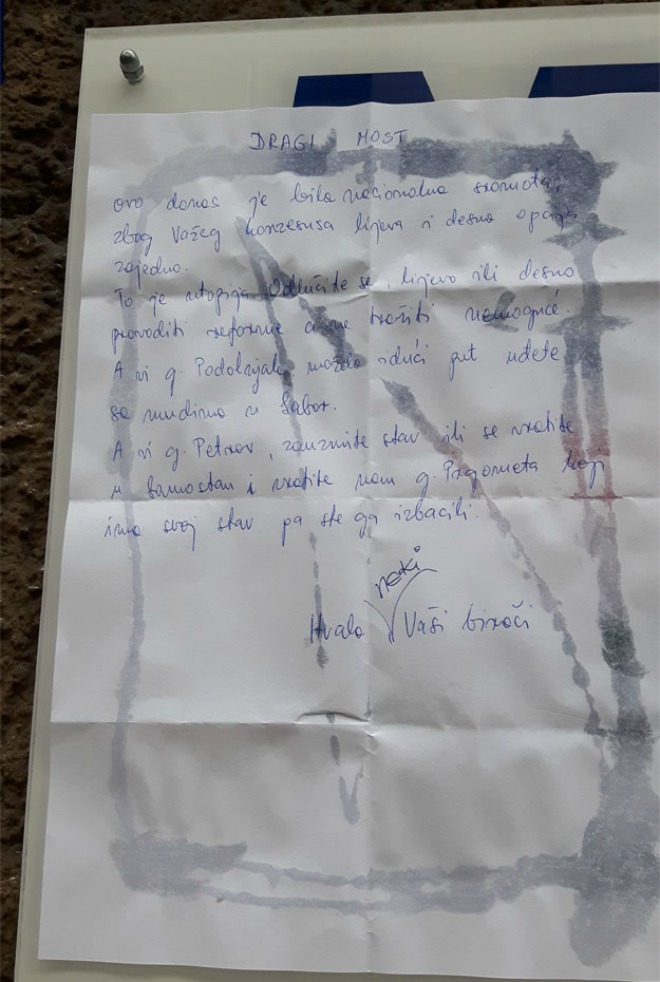 DRAGI MOST
ovo danas je bila nacionalna sramota,
zbog Vašeg konzesusa lijeva i desna opcija
zajedno.
To je utopija. Odlučite se, lijevo ili desno
provoditi reforme a ne tražiti nemoguće.
A vi g. Podolnjak možda idući put uđete
sa nudimo u Sabor.
A vi g. Petrov, zauzmite stav ili se vratite
u samostan i vratite nam g. Prgometa koji
ima svoj stav pa ste ga izbacili.
neki
Hvala Vaši birači